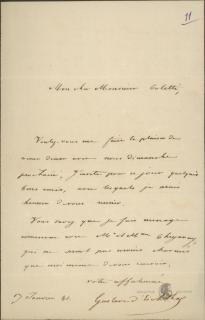 11
Mon cher Monsieur Coletti,
Voulez-vous me faire le plaisir de
venir diner avec nous dimanche
prochain, J'aurai pour ce jour quelques
bons amis, avec lesquels je serai
heureux de vous réunir.
Vous savez que je fais ménage
commun avec Mr et Mme
qui ne seront pas moins charmés
que moi même de vous recevoir,
votre affectionné
7 Janvier
Gustave d'Eichthal